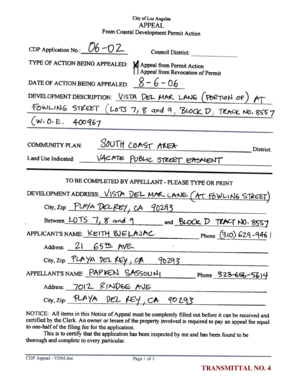 City of Los Angeles
APPEAL
From Coastal Development Permit Action
CDP Application No.: 06-02 Council District:
TYPE OF ACTION BEING APPEALED: [X] Appeal from Permit Action
[ ] Appeal from Revocation of Permit
DATE OF ACTION BEING APPEALED: 8-6-06
DEVELOPMENT DESCRIPTION: VISTA DEL MAR LANE (PORTION OF) AT
FOWLING STREET (LOTS 7, 8 and 9, BLOCK D, TRACK NO. 8557
(W.O.E. 400967
COMMUNITY PLAN: SOUTH COAST AREA District
Land Use Indicated: VACATE PUBLIC STREET EASMENT
TO BE COMPLETED BY APPELLANT - PLEASE TYPE OR PRINT
DEVELOPMENT ADDRESS: VISTA DEL MAR LANE (AT FOWLING STREET)
City, Zip: PLAYA DEL REY, CA 90293
Between LOTS 7, 8 and 9 and BLOCK D TRACT NO. 8557
APPLICANT'S NAME: KEITH BJELAJAC Phone (310) 629-9461
Address: 21 65th AVE
City, Zip: PLAYA DEL REY, CA 90293
APPELLANT'S NAME: PAPKEN SASSOUNI Phone 323-656-5614
Address: 7012 RINDGE AVE
City, Zip: PLAYA DEL REY, CA 90293
NOTICE: All items in this Notice of Appeal must be completely filled out before it can be received and
certified by the Clerk. An owner or lessee of the property involved is required to pay an appeal fee equal
to one-half of the filing fee for the application.
This is to certify that the application has been inspected by me and has been found to be
thorough and complete in every particular.
CDP Appeal - VDM.doc Page 1 of 3
TRANSMITTAL NO. 4